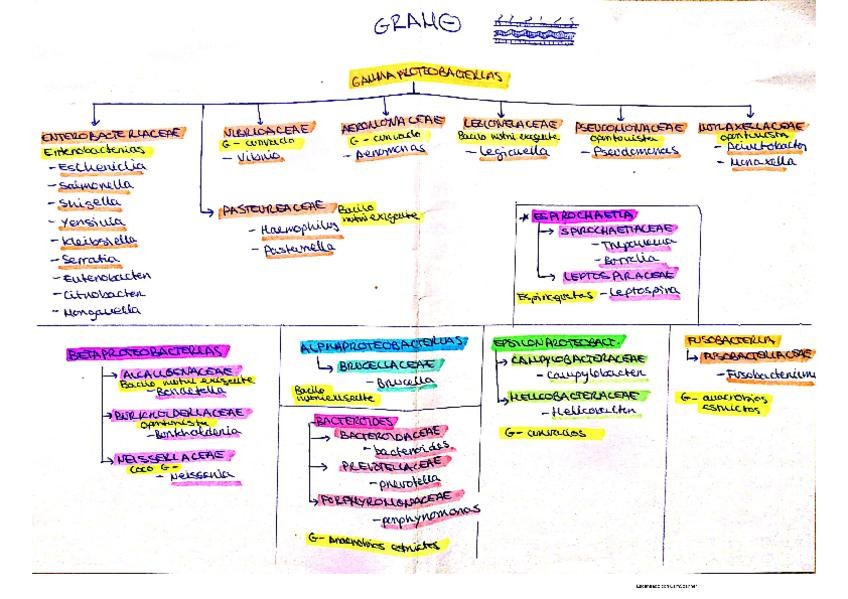 GRAM⊖
GAMMAPROTEOBACTERIAS
ENTEROBACTERIACEAE
Enterobacterias
- Escherichia
- Salmonella
- Shigella
- Yersinia
- Klebsiella
- Serratia
- Enterobacter
- Citrobacter
- Morganella
VIBRIOACEAE
G- curvado
- Vibrio
PASTEURELACEAE
Bacilo
nutri exigente
- Haemophilus
- Pasteurella
AEROMONACEAE
G- curvado
- Aeromonas
LEGIONELACEAE
Bacilo nutri exigente
- Legionella
PSEUDOMONACEAE
oportunista
- Pseudomonas
MORAXELLACEAE
oportunista
- Acinetobacter
- Moraxella
* ESPIROCHAETIA
SPIROCHAETACEAE
- Treponema
- Borrelia
LEPTOSPIRACEAE
Espiroquetas - Leptospira
BETAPROTEOBACTERIAS
ALCALIGENACEAE
Bacilo nutri exigente
- Bordetella
BURKHOLDERIACEAE
oportunista
- Burkholderia
NEISSERIACEAE
coco G-
- Neisseria
ALPHAPROTEOBACTERIAS
BRUCELLACEAE
- Brucella
Bacilo
nutriexigente
BACTEROIDES
BACTEROIDACEAE
- bacteroides
PREVOTELLACEAE
- prevotella
PORPHYROMONACEAE
- porphyromonas
G- anaerobios estrictos
EPSILONPROTEOBACT.
CAMPYLOBACTERACEAE
- Campylobacter
HELICOBACTERACEAE
- Helicobacter
G- curvados
FUSOBACTERIA
FUSOBACTERIACEAE
- Fusobacterium
G- anaerobios
estrictos